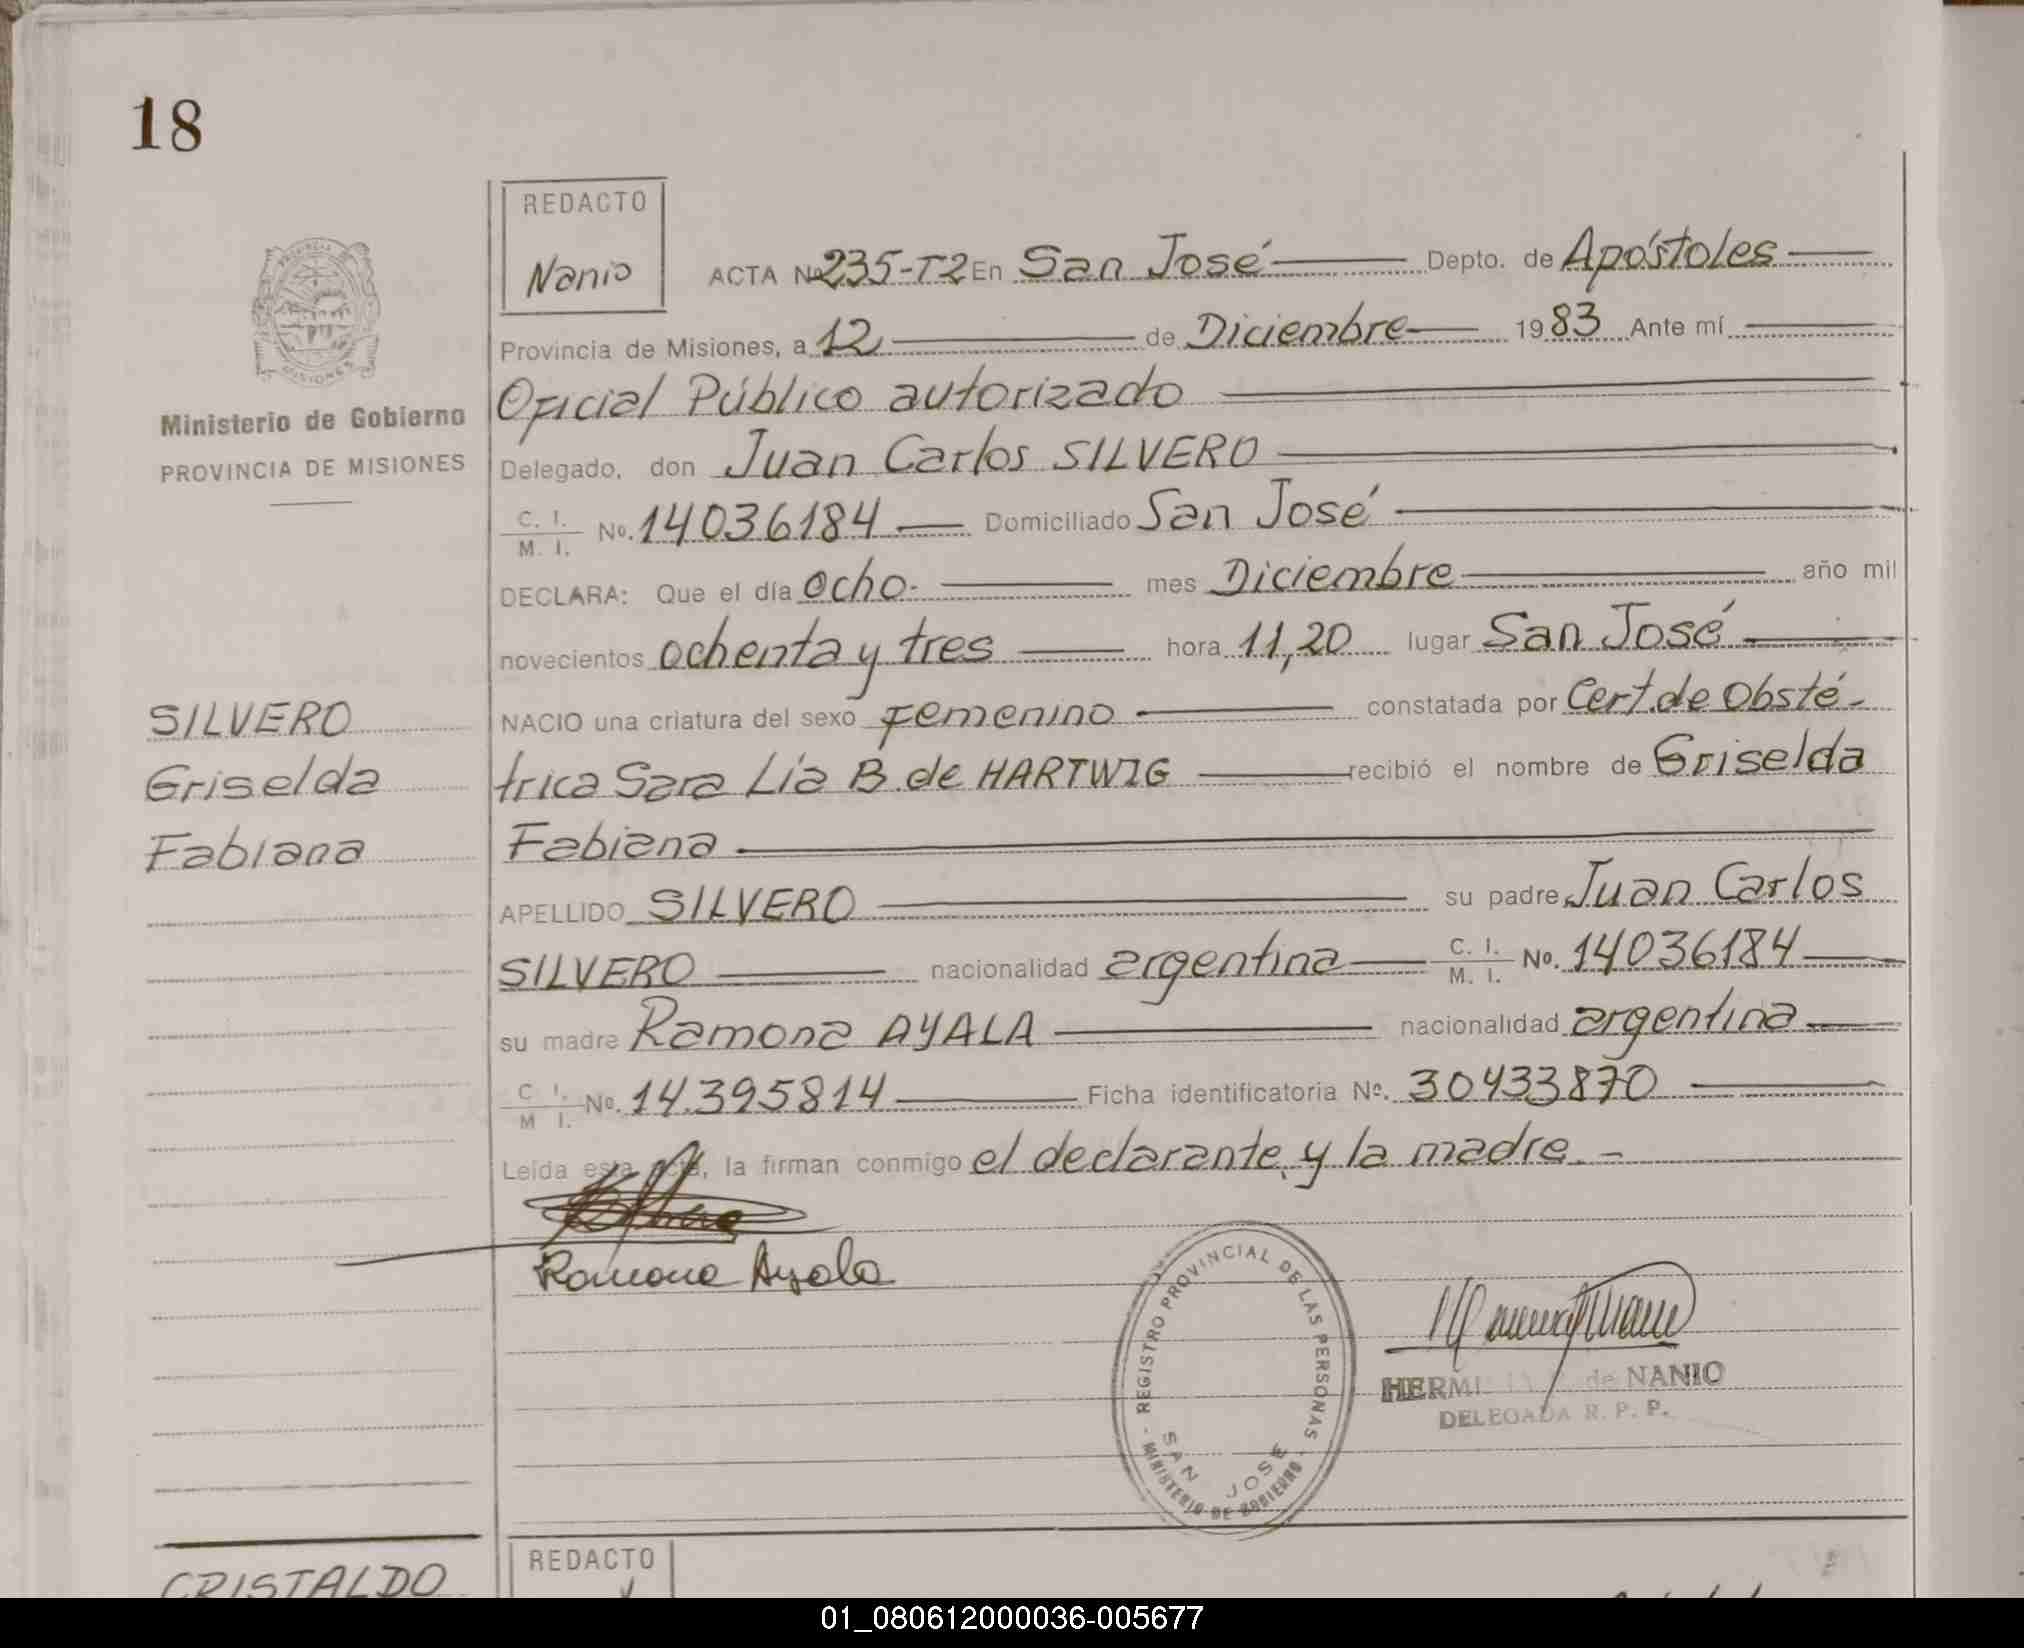 18
REDACTO
Nanio
ACTA Nº 235-T2 En San José Depto. de Apóstoles
Provincia de Misiones, a 12 de Diciembre 1983 Ante mí
Oficial Público autorizado
Delegado, don Juan Carlos SILVERO
C. I.
M. I. Nº. 14036184 Domiciliado San José
DECLARA: Que el día ocho. mes Diciembre año mil
novecientos ochenta y tres hora 11,20 lugar San José
NACIO una criatura del sexo femenino constatada por Cert. de Obsté-
trica Sara Lía B. de HARTWIG recibió el nombre de Griselda
Fabiana
APELLIDO SILVERO su padre Juan Carlos
SILVERO nacionalidad argentina C. I.
M. I. Nº. 14036184
su madre Ramona AYALA nacionalidad argentina
C. I.
M. I. Nº. 14.395814 Ficha identificatoria Nº. 30433870
Leída esta acta, la firman conmigo el declarante, y la madre. -
Ramona Ayala
PROVINCIA
MISIONES
Ministerio de Gobierno
PROVINCIA DE MISIONES
SILVERO
Griselda
Fabiana
REGISTRO PROVINCIAL DE LAS PERSONAS
- MINISTERIO DE GOBIERNO -
SAN JOSE
de NANIO
DELEGADA R. P. P.
CRISTALDO
REDACTO
01_080612000036-005677